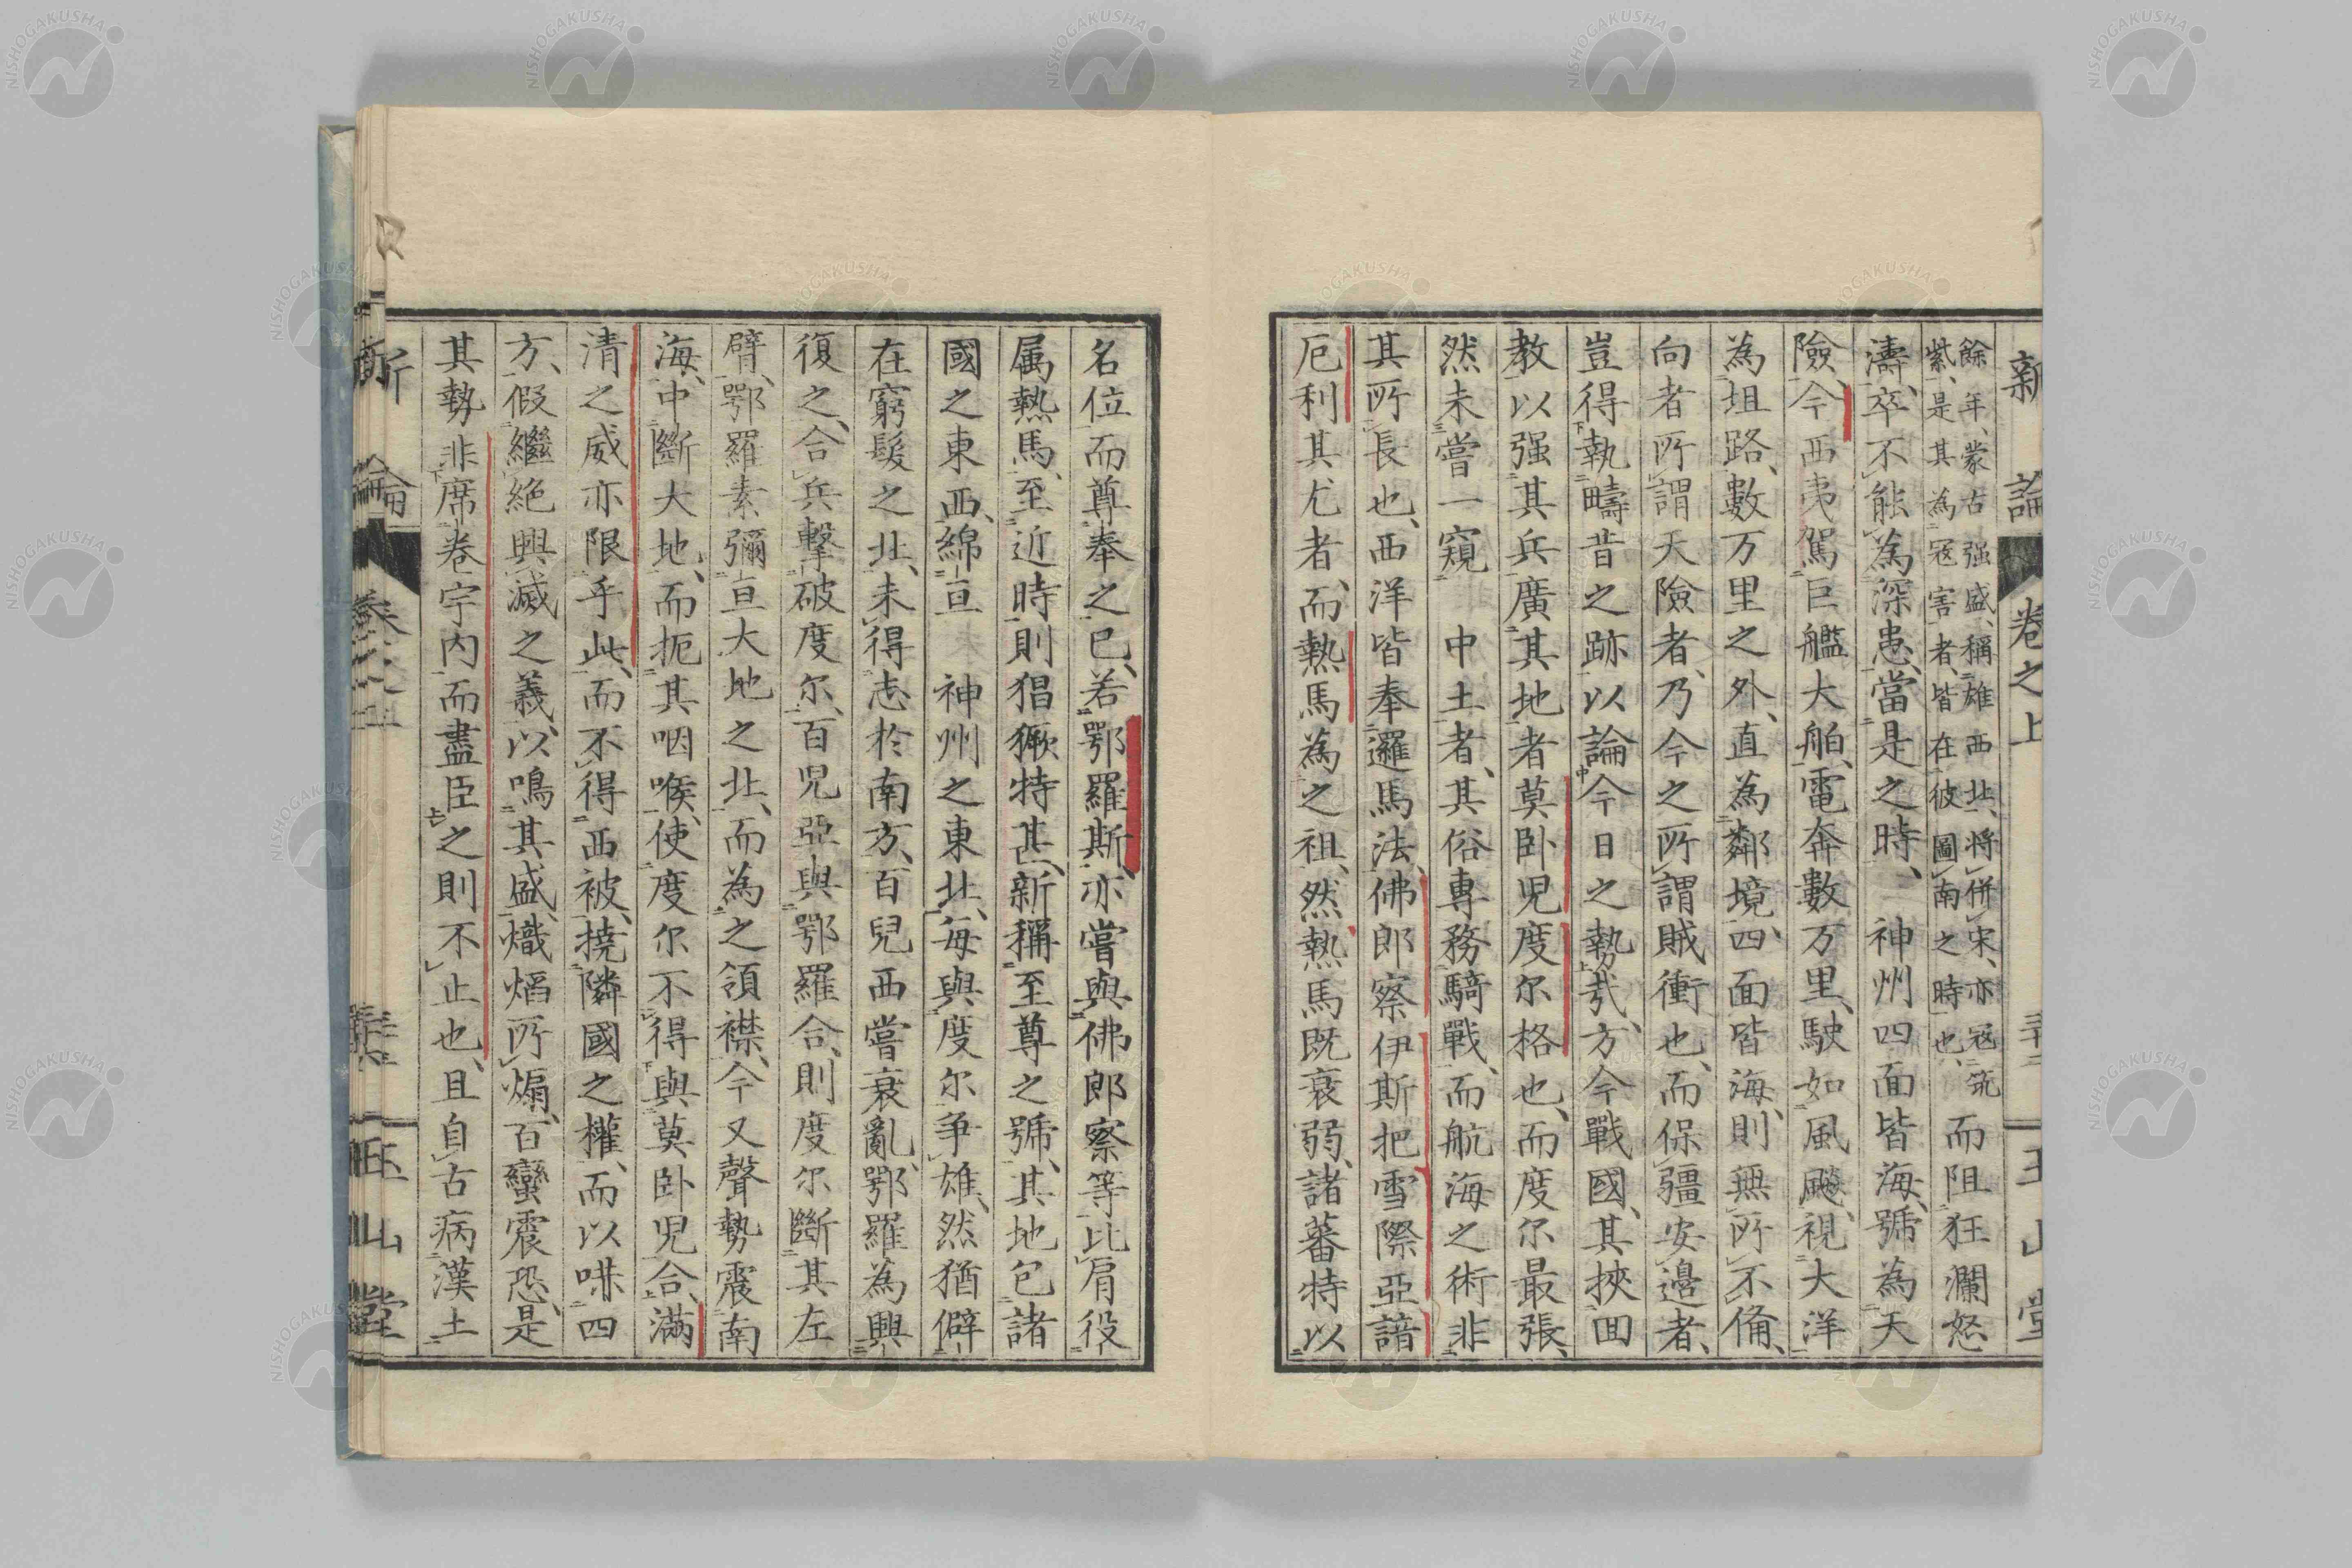 新論 卷之上 玉山堂
餘年、蒙古强盛、稱雄西北、將併宋、亦寇筑
紫、是其為寇害者、皆在彼圖南之時也、
而阻狂瀾怒
濤、卒不能為深患、當是之時、神州四面皆海、號為天
險、今西夷駕巨艦大舶、電奔數万里、駛如風飈、視大洋
為坦路、數万里之外、直為鄰境、四面皆海、則無所不備、
向者所謂天險者、乃今之所謂賊衝也、而保疆安邊者、
豈得執疇昔之跡以論今日之勢哉、方今戰國、其挾囬
教以强其兵廣其地者莫卧児度尓格也、而度尓最張、
然未嘗一窺 中土者、其俗專務騎戰、而航海之術非
其所長也、西洋皆奉邏馬法、佛郎察伊斯把雪際亞諳
厄利其尤者、而熱馬為之祖、然熱馬既衰弱、諸蕃特以
名位而尊奉之已、若鄂羅斯、亦嘗與佛郎察等比肩役
属熱馬、至近時則猖獗特甚、新稱至尊之號、其地包諸
國之東西、綿亘 神州之東北、每與度尓爭雄、然猶僻
在窮髮之北、未得志於南方、百兒西嘗衰亂、鄂羅為興
復之、合兵擊破度尓、百児亞與鄂羅合、則度尓斷其左
臂、鄂羅素彌亘大地之北、而為之領襟、今又聲勢震南
海、中斷大地、而扼其咽喉、使度尓不得與莫卧児合、滿
清之威亦限乎此、而不得西被、撓隣國之權、而以啋四
方、假繼絕興滅之義、以鳴其盛、熾熖所煽、百蠻震恐、是
其勢非席卷宇内而盡臣之則不止也、且自古病漢土
新論 玉山堂